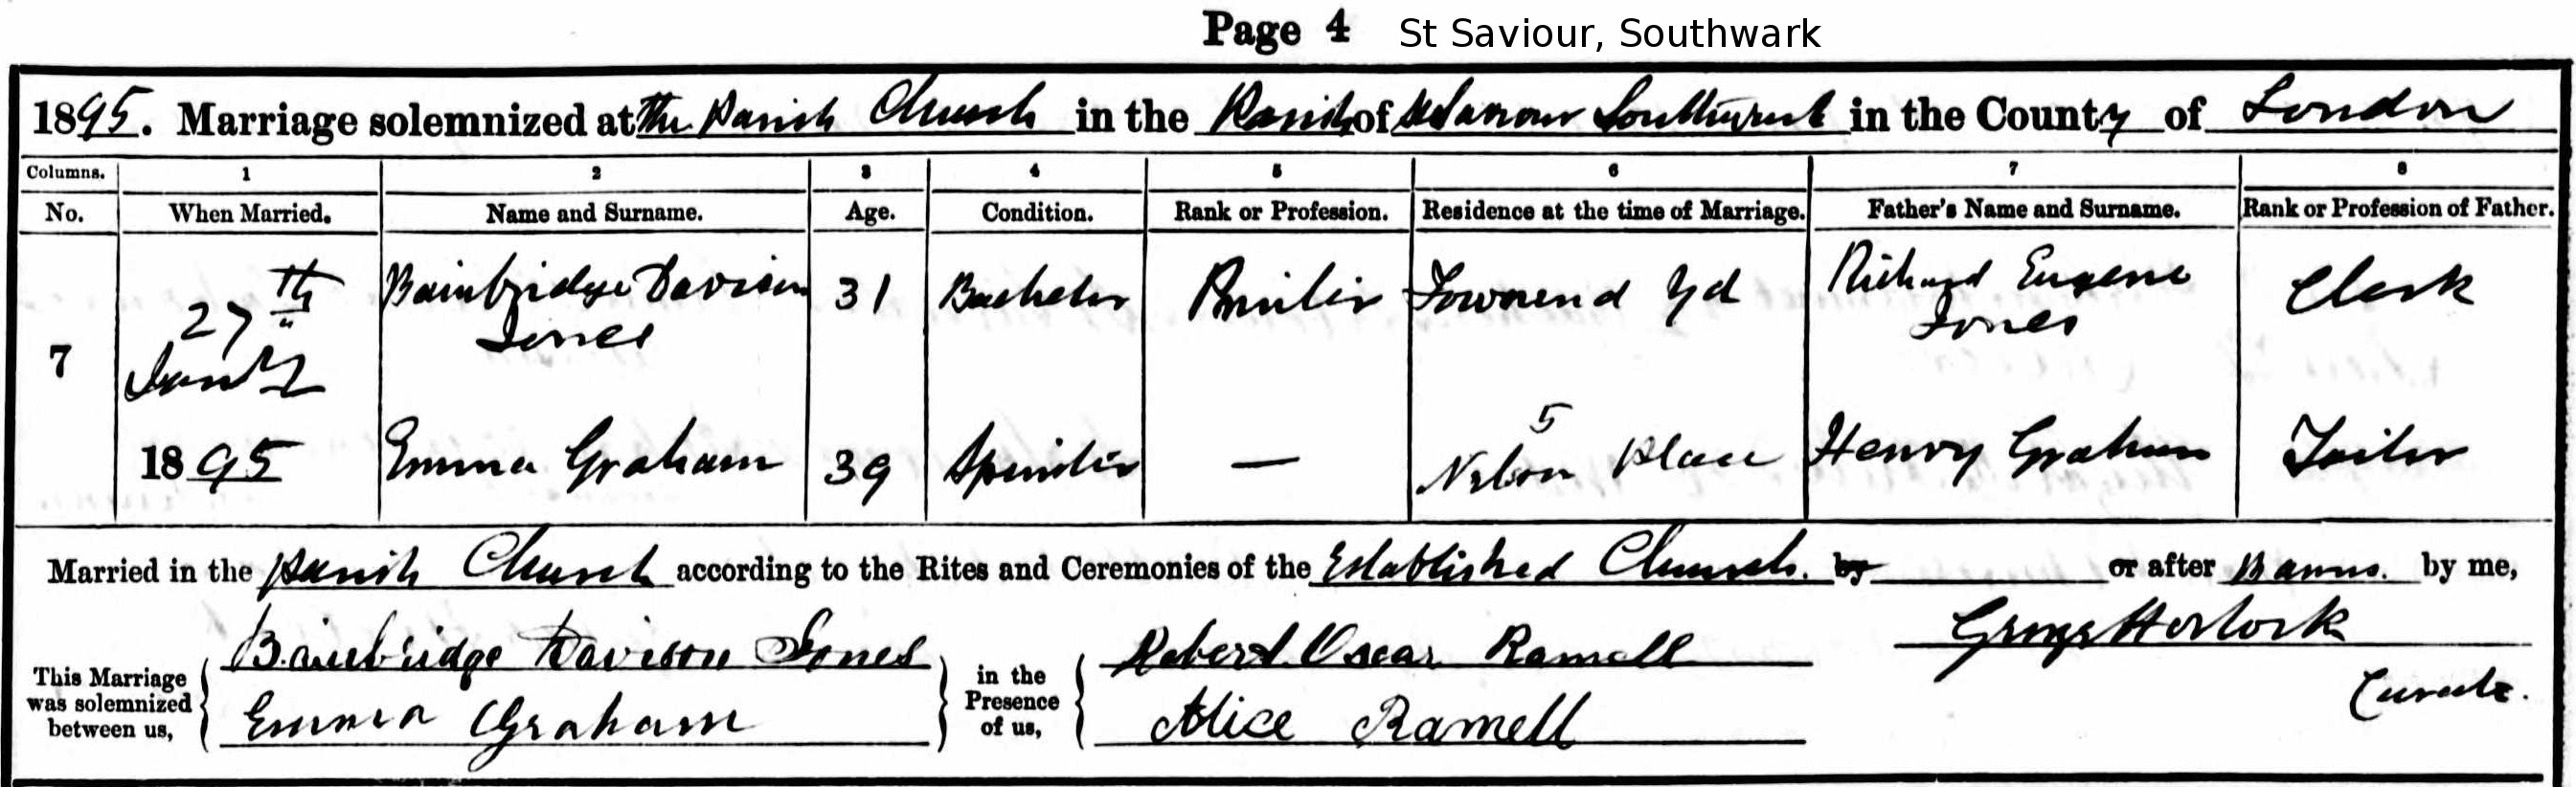 Page 4 St Saviour, Southwark
1895. Marriage solemnized at the Parish Church in the Parish of St Saviour Southwark in the County of London
Columns. 1 2 3 4 5 6 7 8
No. When Married. Name and Surname. Age. Condition. Rank or Profession. Residence at the time of Marriage. Father's Name and Surname. Rank or Profession of Father.
7 27th Jany 1895
Bainbridge Davison Jones 31 Bachelor Printer Townend Yd Richard Eugene Jones Clerk
Emma Graham 39 Spinster — 5 Nelson Place Henry Graham Tailor
Married in the parish Church according to the Rites and Ceremonies of the Established Church. by or after Banns. by me,
This Marriage was solemnized between us,
Bainbridge Davison Jones
Emma Graham
in the Presence of us,
Robert Oscar Ramell
Alice Ramell
George Horlock
Curate.